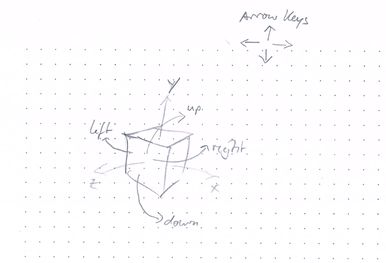 Arrow Keys
Y
up.
left
right.
z
x
down.